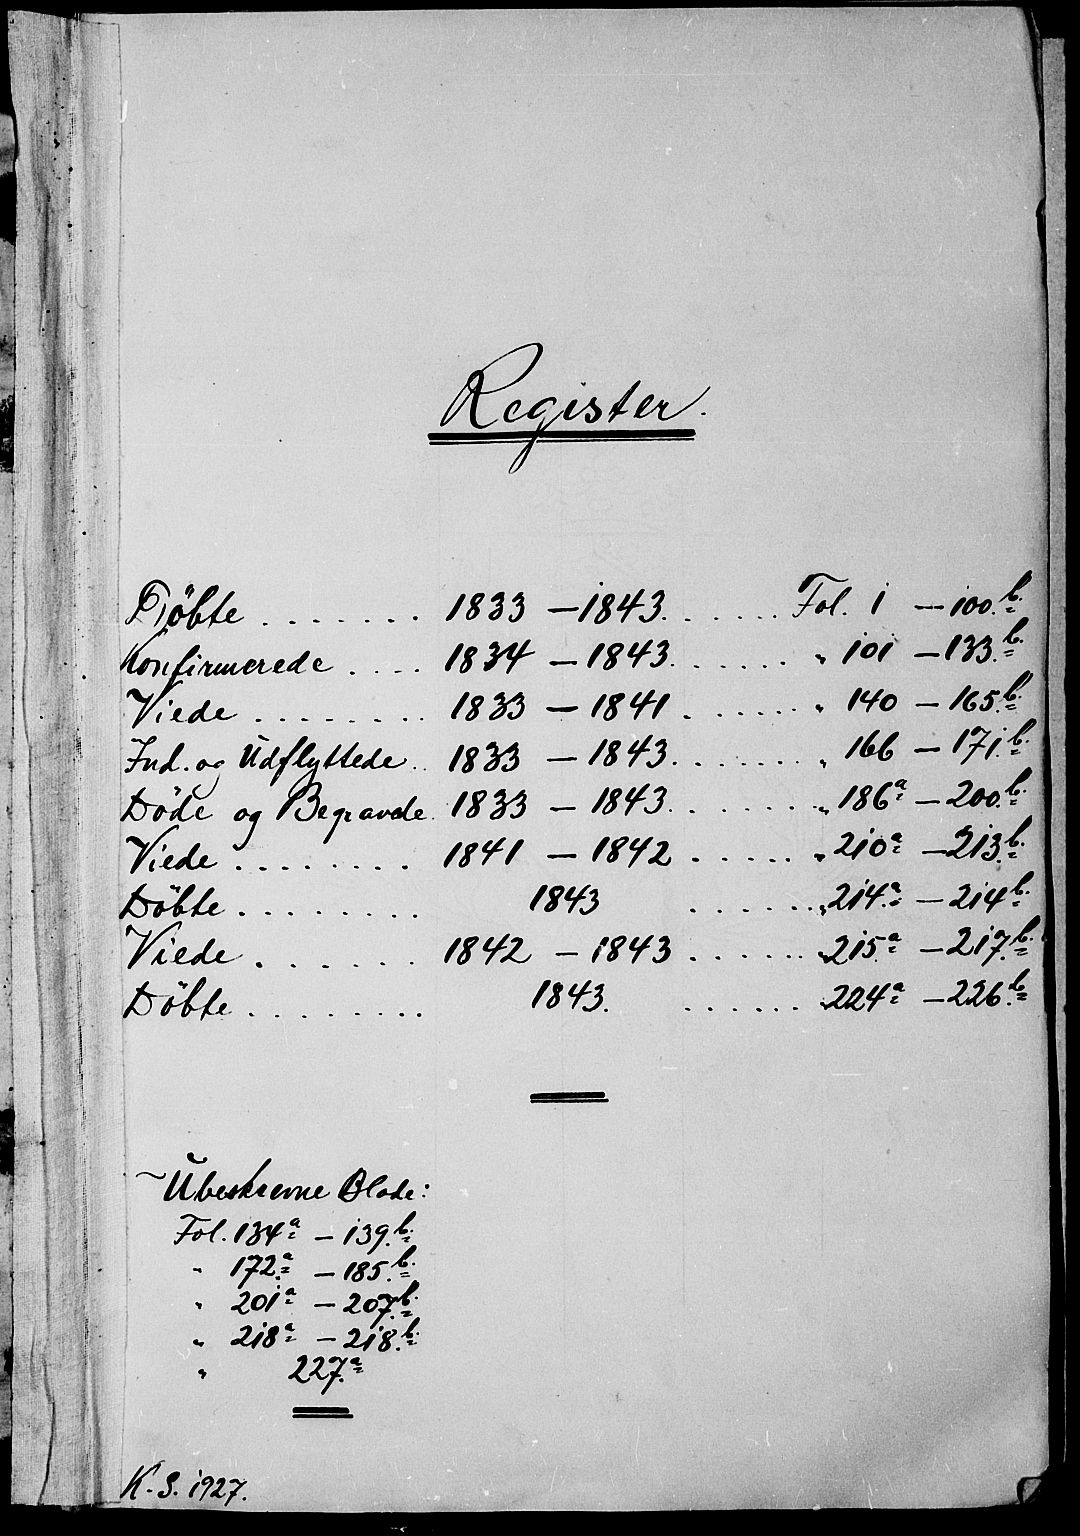 Register.
Döbte ....... 1833 — 1843. ...... Fol. 1 — 100.b.
Konfirmerede .... 1834 — 1843. ...... " 101 — 133.b.
Viede ........ 1833 — 1841 ...... " 140 — 165.b.
Ind. og Udflyttede .. 1833 — 1843. ...... " 166 — 171.b.
Döde og Begravede. 1833 — 1843. ...... " 186a — 200.b.
Viede ........ 1841 — 1842 ...... " 210a — 213.b.
Döbte ........ 1843 ...... " 214.a — 214b.
Viede ....... 1842 — 1843 ...... " 215a — 217.b.
Döbte ........ 1843. ...... " 224a — 226.b.
Ubeskrevne Blade:
Fol. 134a — 139.b.
" 172.a — 185.b.
" 201a — 207.b.
" 218a — 218.b.
" 227.a
K. S. 1927.